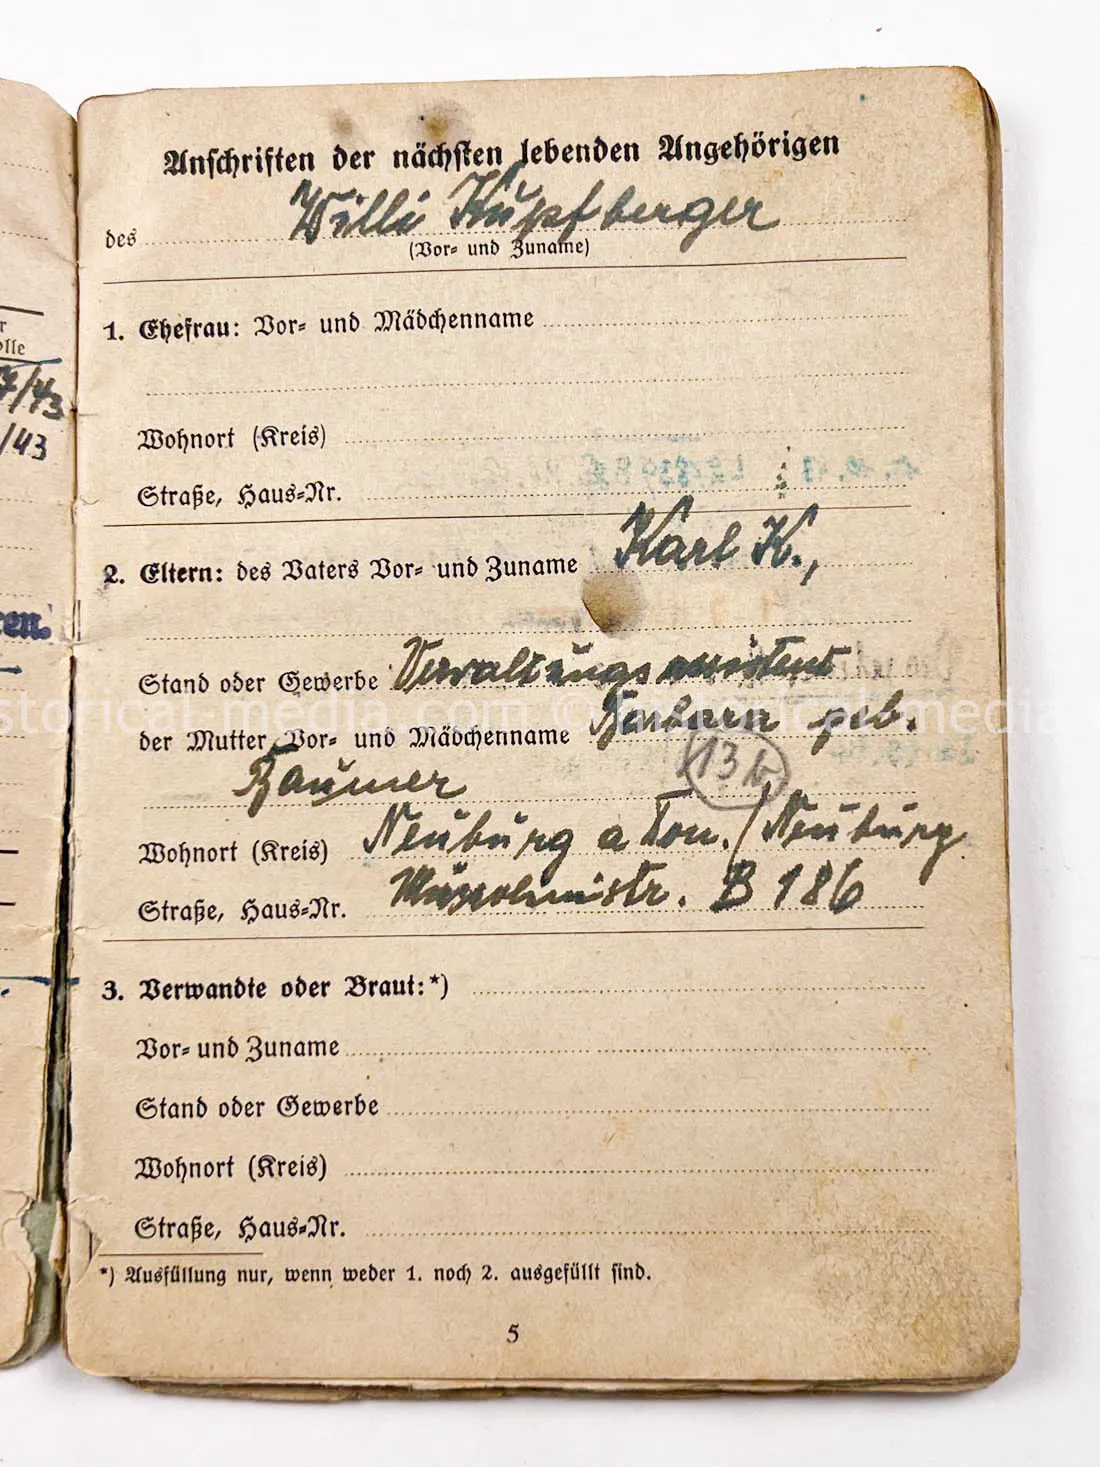 Anschriften der nächsten lebenden Angehörigen
des Willi Kupfberger
(Vor- und Zuname)
1. Ehefrau: Vor- und Mädchenname
Wohnort (Kreis)
Straße, Haus-Nr.
2. Eltern: des Vaters Vor- und Zuname Karl K.,
Stand oder Gewerbe Verwaltungsassistent
der Mutter Vor- und Mädchenname Barbara geb.
13b
Baumer
Wohnort (Kreis) Neuburg a Don./Neuburg
Straße, Haus-Nr. B 186
3. Verwandte oder Braut:*)
Vor- und Zuname
Stand oder Gewerbe
Wohnort (Kreis)
Straße, Haus-Nr.
*) Ausfüllung nur, wenn weder 1. noch 2. ausgefüllt sind.
5
r
olle
7/43
/43
en.
storical-media.com © historical-media